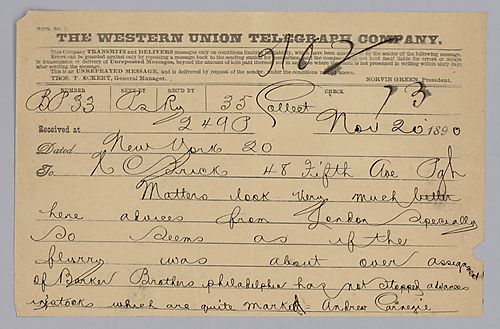 Form No. 1.
THE WESTERN UNION TELEGRAPH COMPANY.
This Company TRANSMITS and DELIVERS messages only on conditions limiting its liability, which have been assented to by the sender of the following message.
Errors can be guarded against only by repeating a message back to the sending station for comparison, and the company will not hold itself liable for errors or delays
in transmission or delivery of Unrepeated Messages, beyond the amount of tolls paid thereon, nor in any case where the claim is not presented in writing within sixty days
after sending the message.
This is an UNREPEATED MESSAGE, and is delivered by request of the sender, under the conditions named above.
THOS. T. ECKERT, General Manager. NORVIN GREEN, President.
NUMBER SENT BY REC'D BY CHECK
BP 33 As 35 Collect 73
249P
Received at Nov 20 1890
Dated New York 20
To H C Frick 48 Fifth Ave Pgh
Matters look very much better
here advices from London specially
So seems as if the
flurry was about over assignment
of Barker Brothers philadelphia has not stopped advances
in stocks which are quite marked Andrew Carnegie